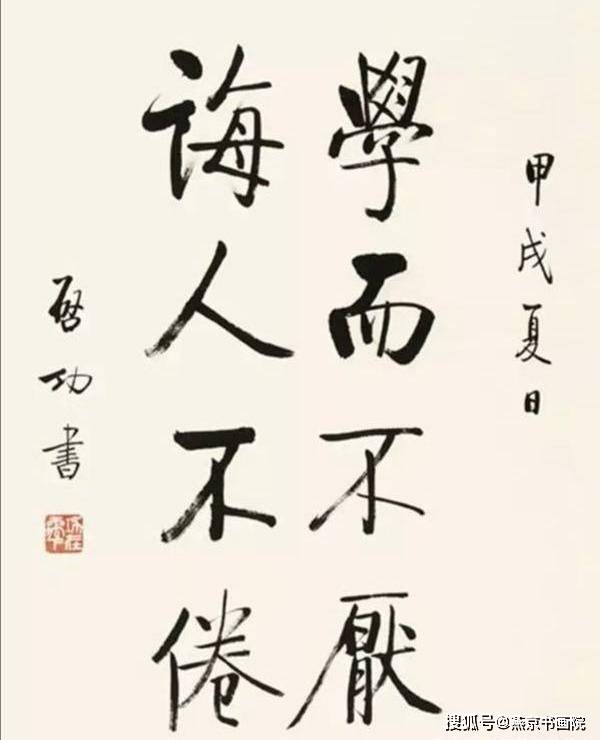 甲戌夏日
學而不厭
誨人不倦
啓功書
搜狐号@燕京书画院